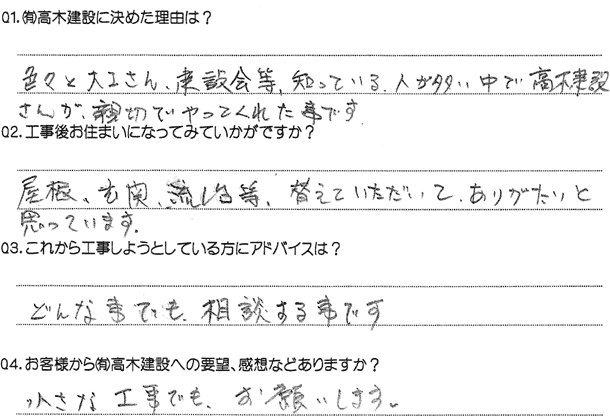 Q1.㈲高木建設に決めた理由は？
色々と大工さん、建設会等、知っている、人が多い中で高木建設
さんが、親切でやってくれた事です
Q2.工事後お住まいになってみていかがですか？
屋根、玄関、流し台等、替えていただいて、ありがたいと
思っています。
Q3.これから工事しようとしている方にアドバイスは？
どんな事でも、相談する事です
Q4.お客様から㈲高木建設への要望、感想などありますか？
小さな工事でも、お願いします。